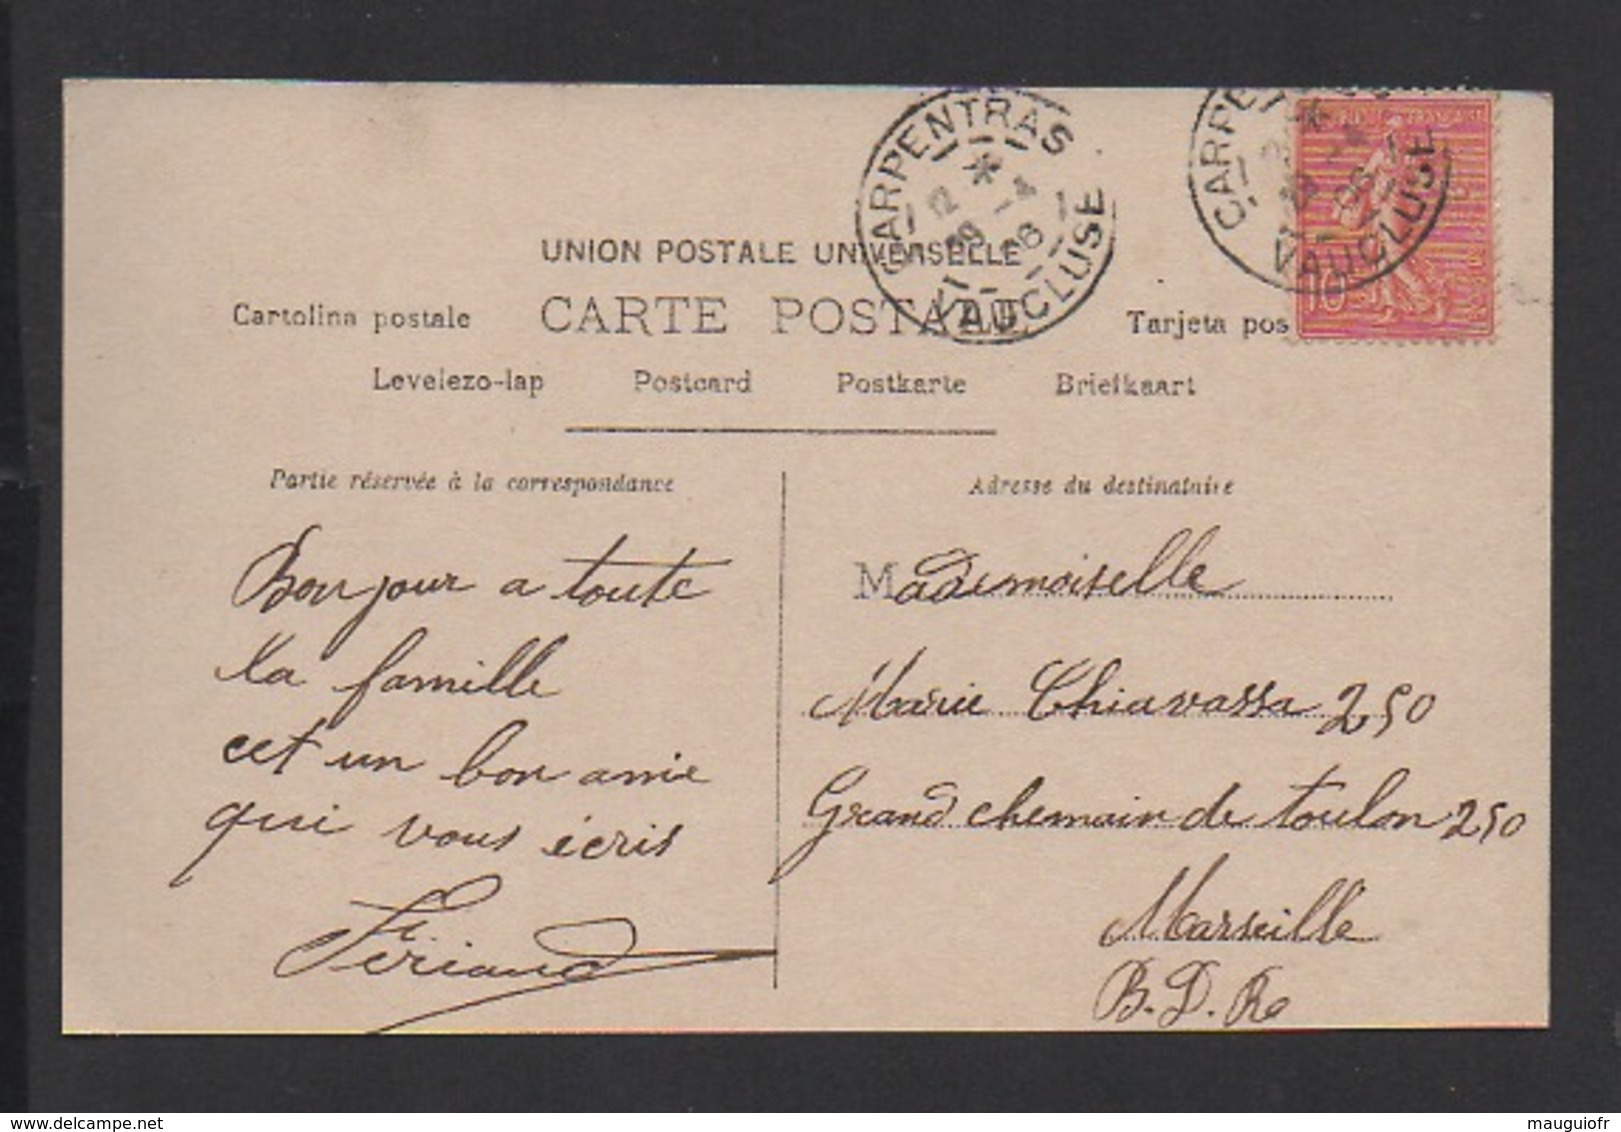 CARPENTRAS
12
29 -4
06
VAUCLUSE
CARPE
06
VAUCLUSE
REPUBLIQUE FRANÇAISE
10
UNION POSTALE UNIVERSELLE
Cartolina postale CARTE POSTALE Tarjeta pos
Levelezo-lap Postcard Postkarte Briefkaart
Partie réservée à la correspondance
Bonjour a toute
la famille
cet un bon amie
qui vous écris
Fériaud
Adresse du destinataire
Mademoiselle
Marie Chiavassa 250
Grand chemain de toulon 250
Marseille
B. D. Re
mauguiofr